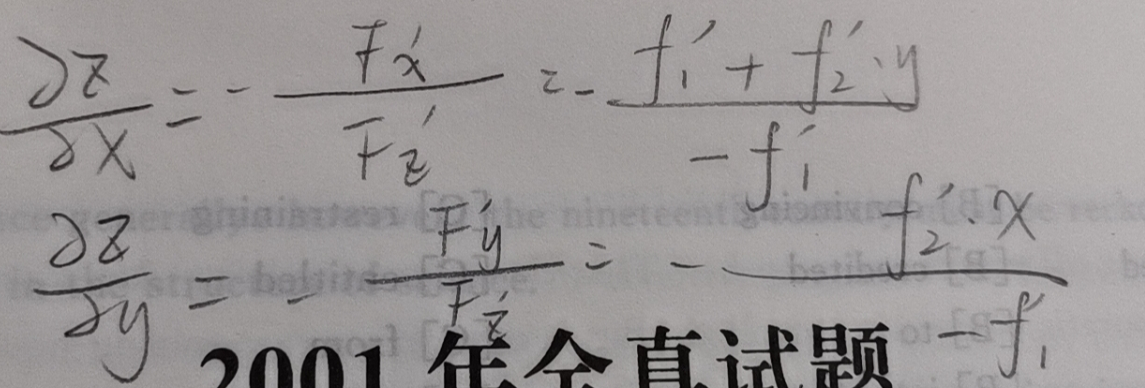 ∂z/∂x = - F'x/F'z = - (f'₁ + f'₂·y)/(-f'₁)
∂z/∂y = - F'y/F'z = - (f'₂·x)/(-f'₁)
2001 年全真试题